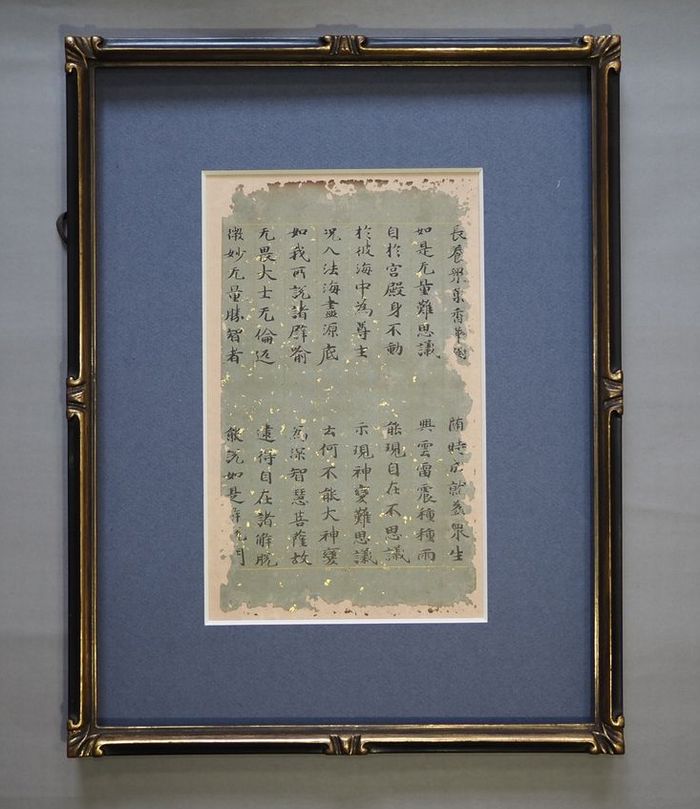 長養衆菓香華樹 隨時成就益衆生
如是无量難思議 興雲雷震種種雨
自於宮殿身不動 能現自在不思議
於彼海中為尊主 示現神變難思議
况入法海盡源底 云何不能大神變
如我所說諸譬喻 為深智慧菩薩故
无畏大士无倫匹 逮得自在諸解脫
微妙无量勝智者 能說如是 門